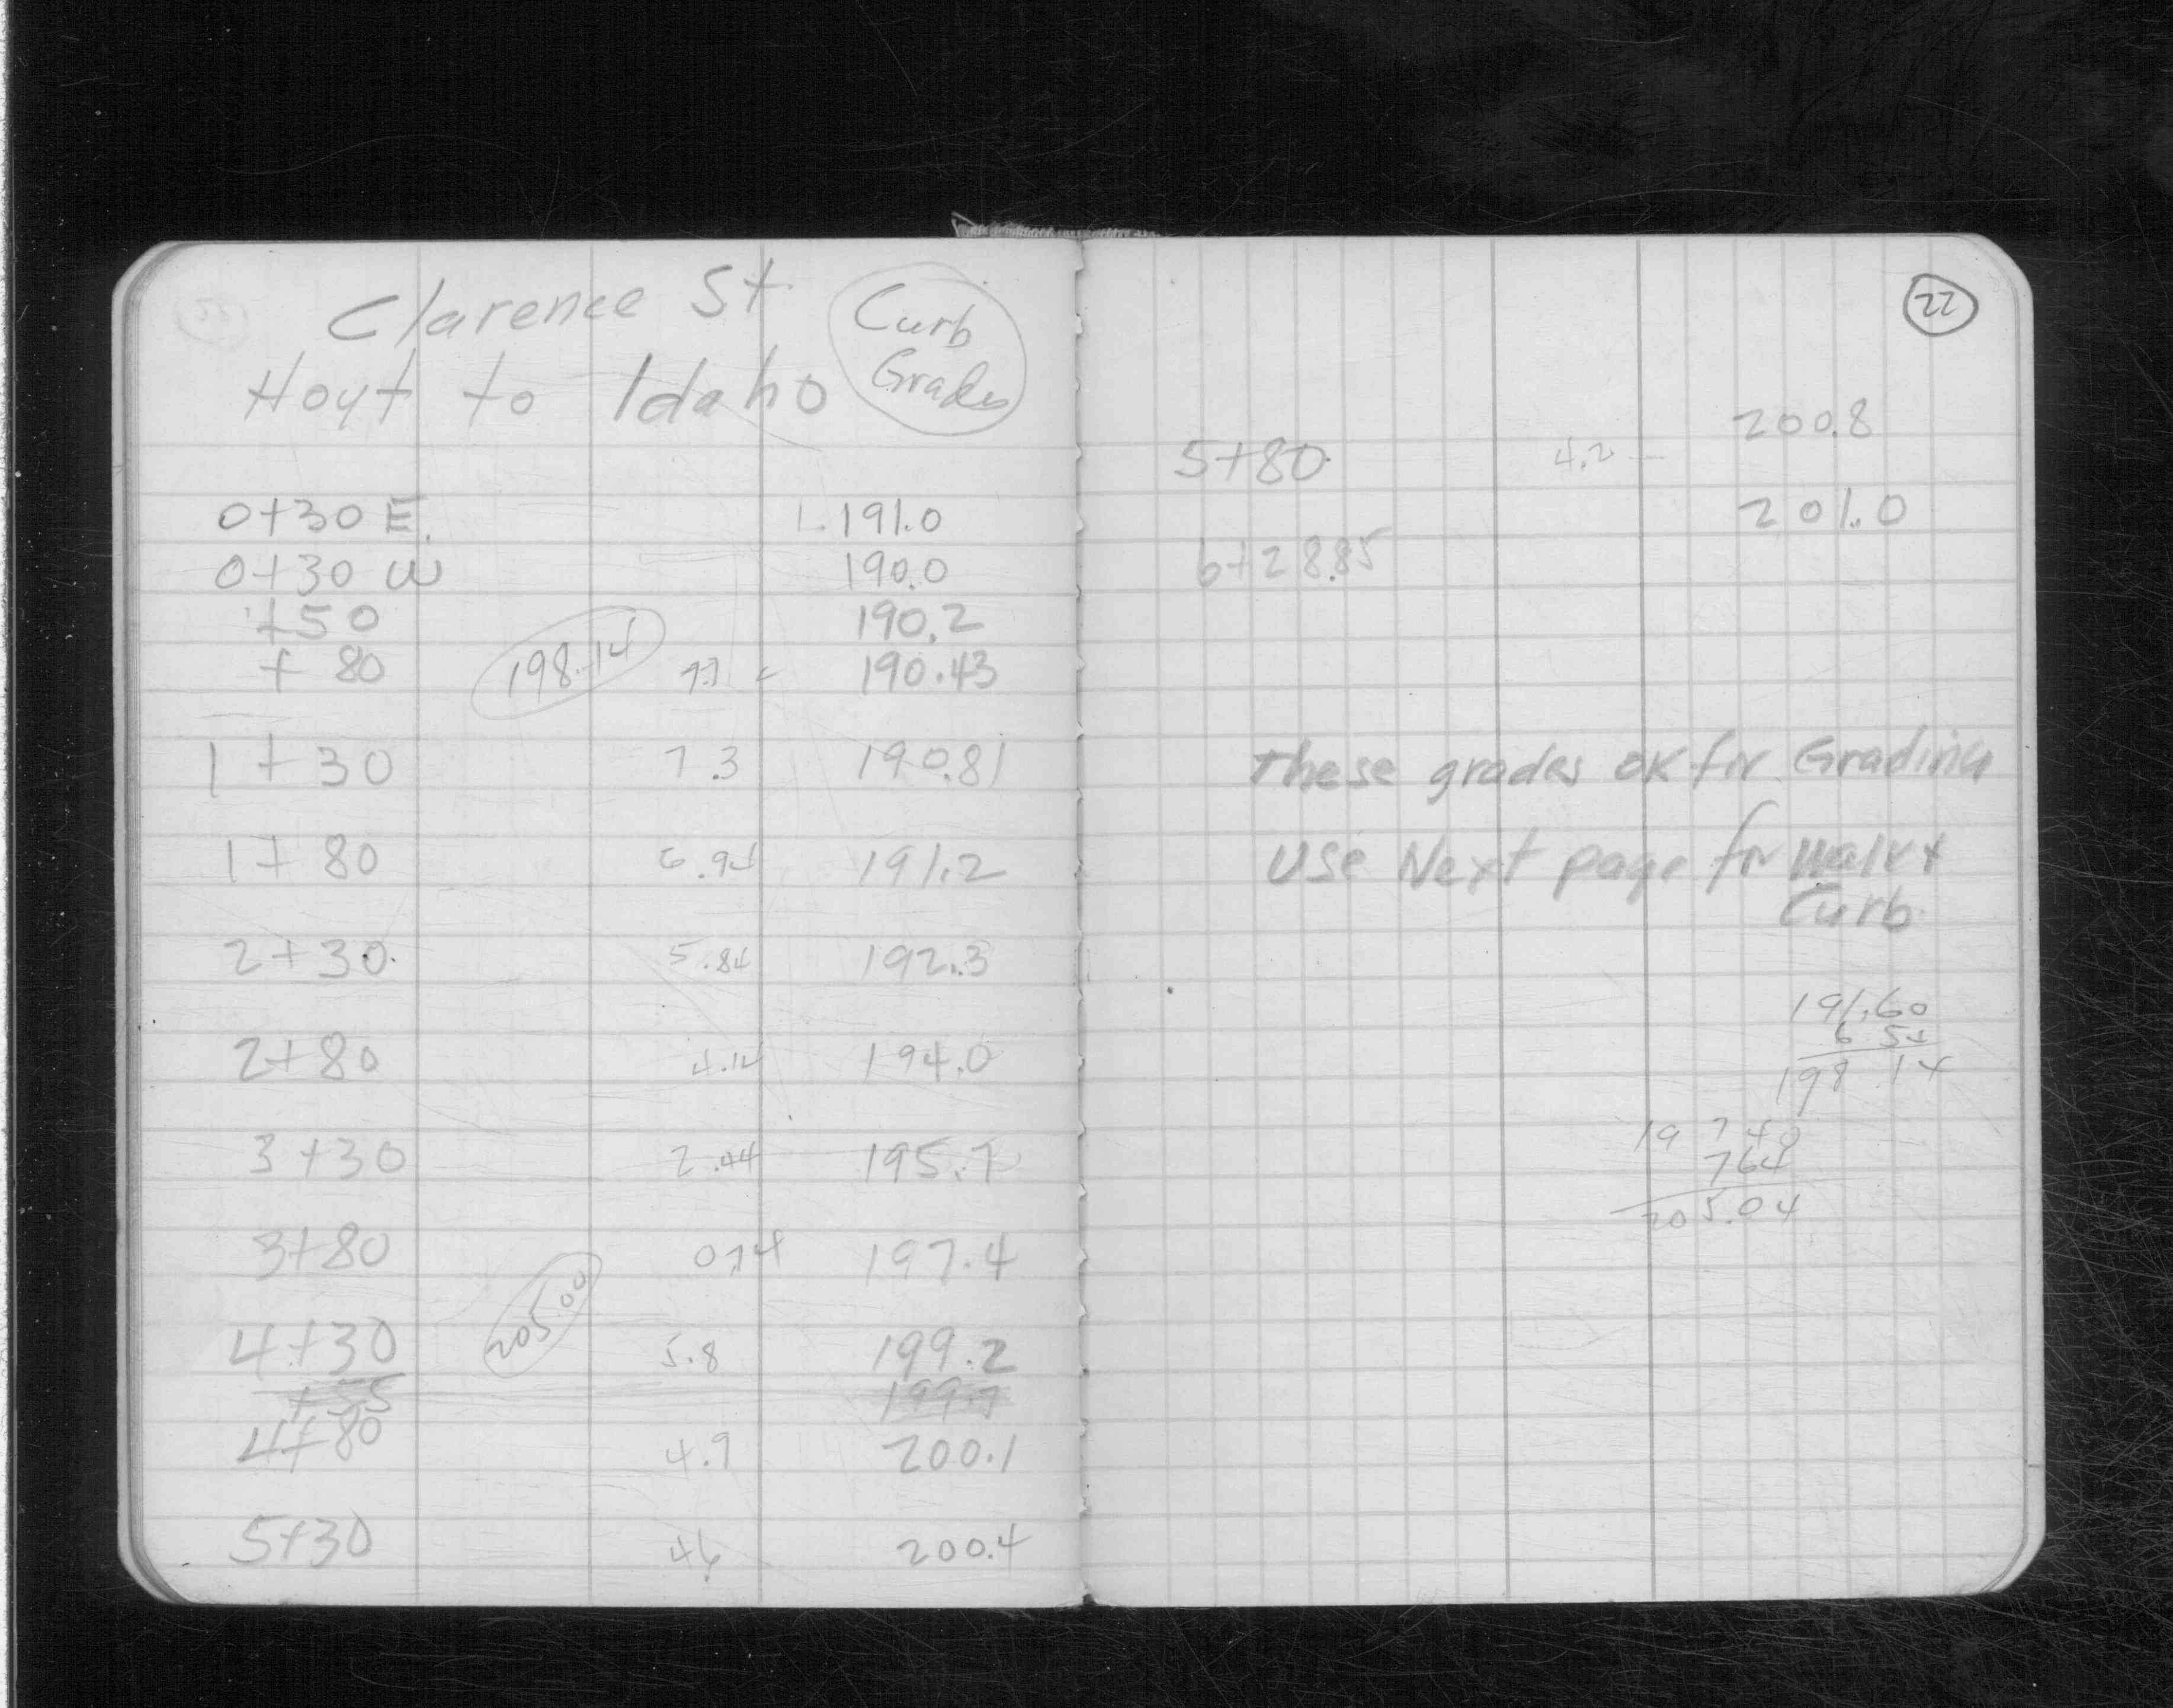 Clarence St
Curb
Grades
Hoyt to Idaho
0+30 E. 191.0
0+30 W 190.0
+50 190.2
+ 80 198.14 7.7 190.43
1+30 7.3 190.81
1+80 6.94 191.2
2+30 5.84 192.3
2+80 4.14 194.0
3+30 2.44 195.7
3+80 0.74 197.4
4+30 205.00 5.8 199.2
+55 199.7
4+80 4.9 200.1
5+30 4.6 200.4
22
5+80 4.2 200.8
201.0
6+28.85
These grades OK for Grading
Use Next page for Walk +
Curb
191.60
6 54
198 14
19 7 40
7 64
205.04